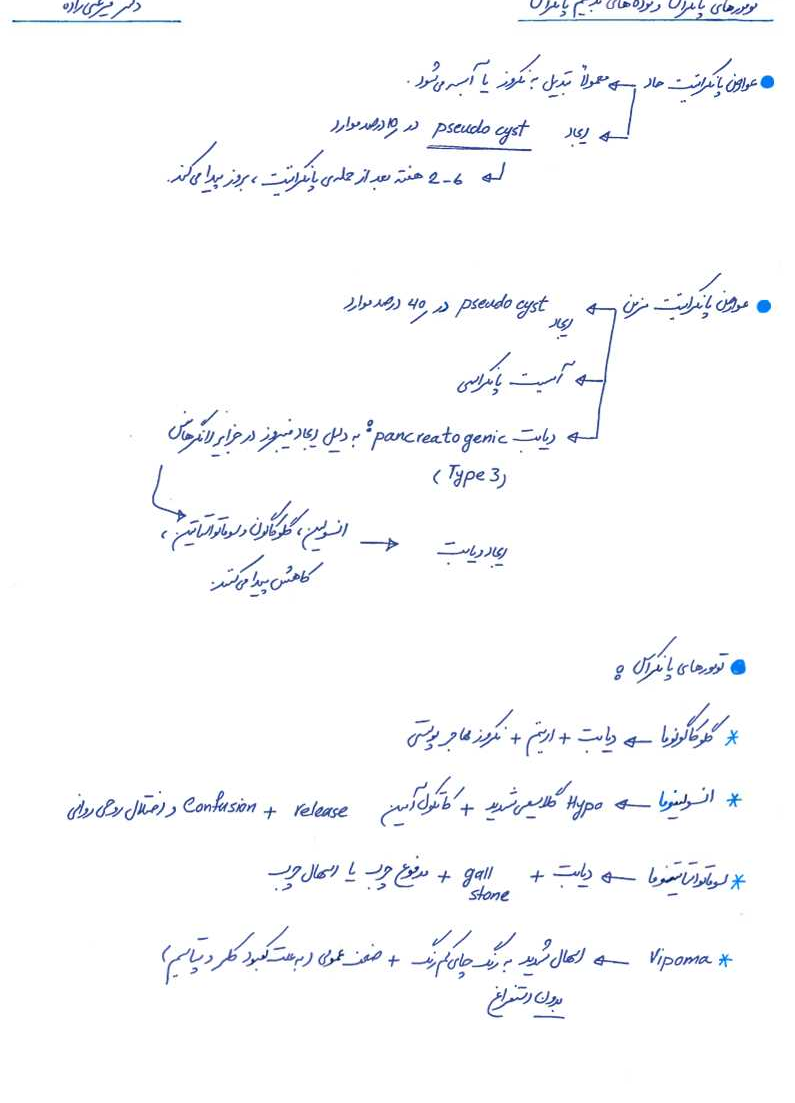 تومورهای پانکراس و توده‌های خوش‌خیم پانکراس
دکتر میرعلی‌زاده
● عوارض پانکراتیت حاد ← معمولاً تبدیل به نکروز یا آبسه می‌شود.
← ایجاد pseudo cyst در ۱۰ درصد موارد
۲-۶ هفته بعد از حمله‌ی پانکراتیت، بروز پیدا می‌کند.
● عوارض پانکراتیت مزمن ← ایجاد pseudo cyst در ۴۰ درصد موارد
← آسیت پانکراسی
← دیابت pancreatogenic: به دلیل ایجاد فیبروز در جزایر لانگرهانس
(Type 3)
انسولین، گلوکاگون و سوماتواستاتین، → ایجاد دیابت
کاهش پیدا می‌کنند.
● تومورهای پانکراس:
* گلوکاگونوما ← دیابت + اریتم + نکروز مهاجر پوستی
* انسولینوما ← Hypo گلایسمی شدید + کاتکول آمین release + Confusion و اختلال روحی روانی
* سوماتواستاتینوما ← دیابت + gall stone + مدفوع چرب یا اسهال چرب
* Vipoma ← اسهال شدید به رنگ چای کم رنگ + ضعف عمومی (به علت کمبود کلر و پتاسیم)
بدون استفراغ